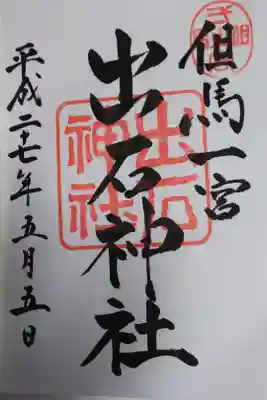 但馬一宮
出石神社
平成二十七年五月五日
出石
神社